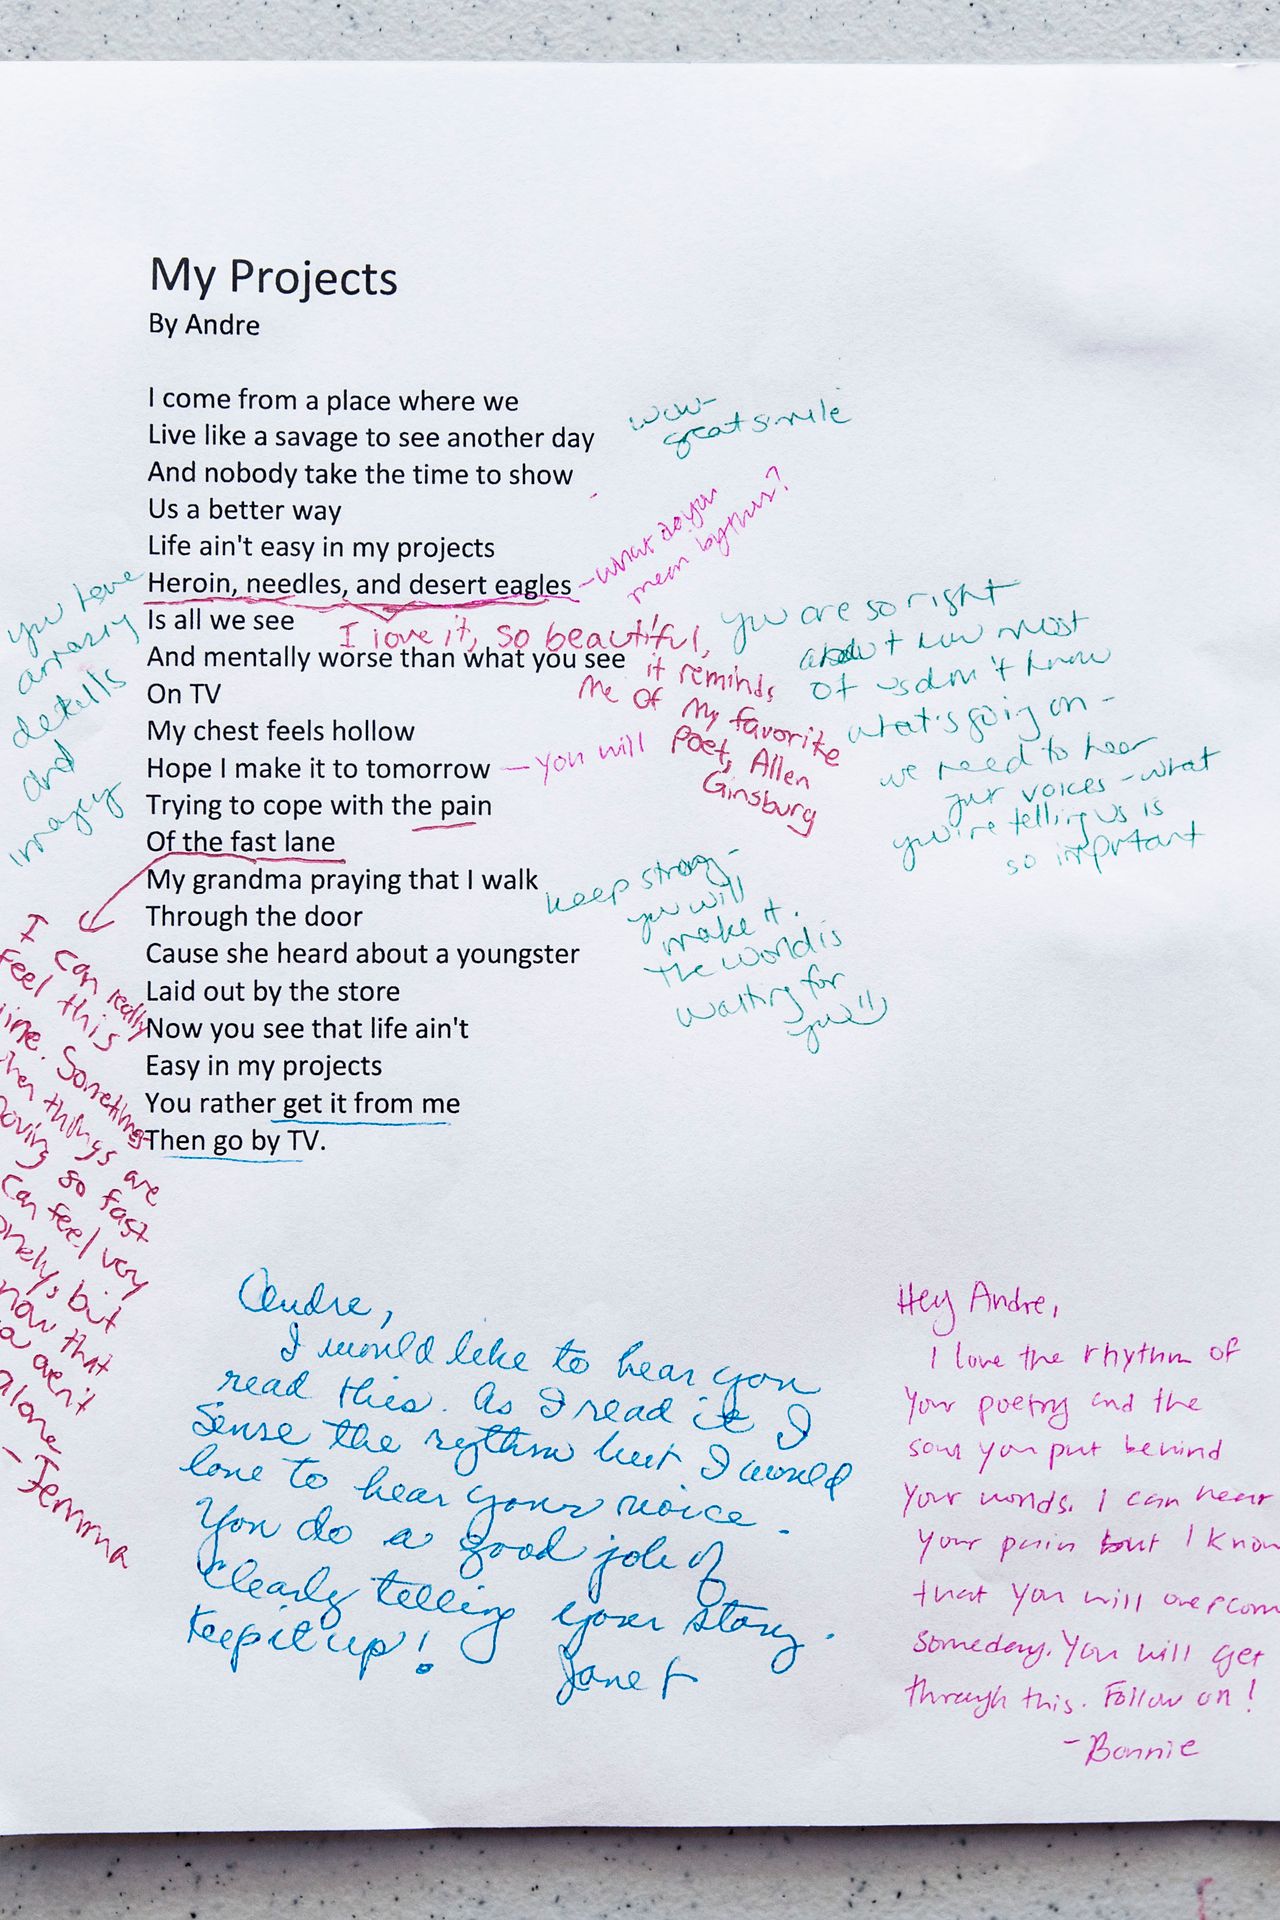 My Projects
By Andre
I come from a place where we
Live like a savage to see another day
And nobody take the time to show
Us a better way
Life ain't easy in my projects
Heroin, needles, and desert eagles
Is all we see
And mentally worse than what you see
On TV
My chest feels hollow
Hope I make it to tomorrow
Trying to cope with the pain
Of the fast lane
My grandma praying that I walk
Through the door
Cause she heard about a youngster
Laid out by the store
Now you see that life ain't
Easy in my projects
You rather get it from me
Then go by TV.
wow-
great simile
-what do you
mean by this?
I love it, so beautiful,
it reminds
me of my favorite
Poet, Allen
Ginsburg
you are so right
about how most
of us don't know
what's going on -
we need to hear
your voices - what
you're telling us is
so important
- you will
you have
amazing
details
and
imagery
keep strong -
you will
make it.
The world is
waiting for
you!!
I can really
feel this
line. Something
when things are
moving so fast
can feel very
lonely, but
know that
you aren't
alone
- Jemma
Andre,
I would like to hear you
read this. As I read it I
sense the rythm but I would
love to hear your voice.
You do a good job of
clearly telling your story.
Keep it up!
Janet
Hey Andre,
I love the rhythm of
your poetry and the
soul you put behind
your words. I can hear
your pain but I know
that you will overcom
someday. You will get
through this. Follow on!
-Bonnie